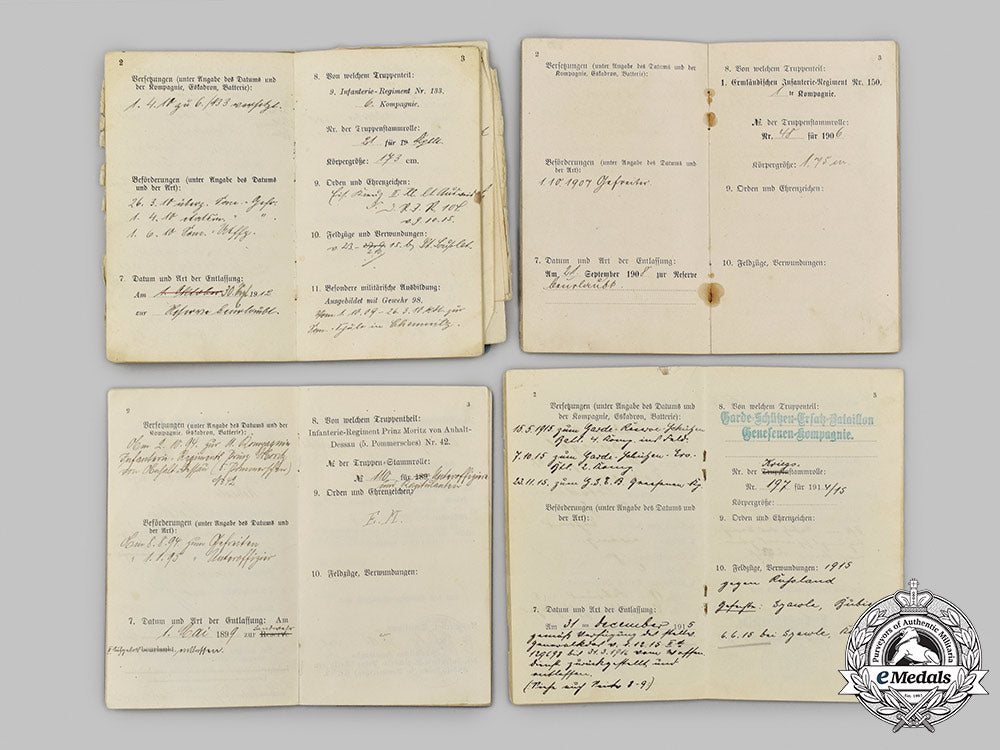 2
Versetzungen (unter Angabe des Datums und
der Kompagnie, Eskadron, Batterie):
1. 4. 10 zu 6./133 versetzt.
Beförderungen (unter Angabe des Datums
und der Art):
26. 3. 10 überz.
1. 4. 10
1. 6. 10
7. Datum und Art der Entlassung:
Am 1. Oktober 30. 1912
zur Reserve beurlaubt.
3
8. Von welchem Truppenteil:
9. Infanterie-Regiment Nr. 133.
6. Kompagnie.
Nr. der Truppenstammrolle:
21 für 19
Körpergröße: 173 cm.
9. Orden und Ehrenzeichen:
10. Feldzüge und Verwundungen:
11. Besondere militärische Ausbildung:
Ausgebildet mit Gewehr 98.
Vom 1. 10. 09 - 26. 3. 10 zur
Schule in Chemnitz.
2
Versetzungen (unter Angabe des Datums und der
Kompagnie, Eskadron, Batterie):
Beförderungen (unter Angabe des Datums und der
Art):
1. 10. 1907 Gefreiter.
7. Datum und Art der Entlassung:
Am 21. September 1908 zur Reserve
beurlaubt.
3
8. Von welchem Truppenteil:
1. Ermländischen Infanterie-Regiment Nr. 150.
1 te Kompagnie.
№ der Truppenstammrolle:
Nr. 48 für 1906
Körpergröße: 1.75 m
9. Orden und Ehrenzeichen:
10. Feldzüge, Verwundungen:
2
Versetzungen (unter Angabe des Datums und der
Compagnie, Eskadron, Batterie):
Am 2. 10. 97. zur 11. Kompagnie
Infanterie-Regiment Prinz Moritz
von Anhalt-Dessau (5. Pommersches)
№ 42
Beförderungen (unter Angabe des Datums und
der Art):
Am 8. 8. 94. zum Gefreiten
" 1. 1. 95 " Unteroffizier
7. Datum und Art der Entlassung: Am
1. Mai 1899 zur Landwehr
entlassen.
3
8. Von welchem Truppentheil:
Infanterie-Regiment Prinz Moritz von Anhalt-
Dessau (5. Pommersches) Nr. 42.
№ der Truppen-Stammrolle:
№ 110 für 189 Unteroffiziere
und Kapitulanten
9. Orden und Ehrenzeichen:
10. Feldzüge, Verwundungen:
2
Versetzungen (unter Angabe des Datums und
der Kompagnie, Eskadron, Batterie):
15. 5. 1915 zum Garde-Reserve-Schützen
Batl. 4. Komp ins Feld.
7. 10. 15 zum Garde-Schützen-Ers.
Btl. 2. Komp
23. 11. 15. zum G.S.E.B Genesenen Kp
Beförderungen (unter Angabe des Datums und
der Art):
7. Datum und Art der Entlassung:
Am 31 ten Dezember 1915
gemäß Verfügung des stellv.
Generalkdos v. 3. 12. 15
129698 bis 31. 3. 1916 vom Waffen
dienst zurückgestellt und
entlassen
(Siehe auf Seite 8-9.)
3
8. Von welchem Truppenteil:
Garde-Schützen-Ersatz-Bataillon
Genesenen-Kompagnie.
Kriegs
Nr. der Truppenstammrolle:
Nr. 197 für 1914/15
Körpergröße:
9. Orden und Ehrenzeichen:
10. Feldzüge, Verwundungen: 1915
gegen Russland
Gefechte: Szawle,
6. 6. 15 bei Szawle,
Purveyors of Authentic Militaria
eMedals